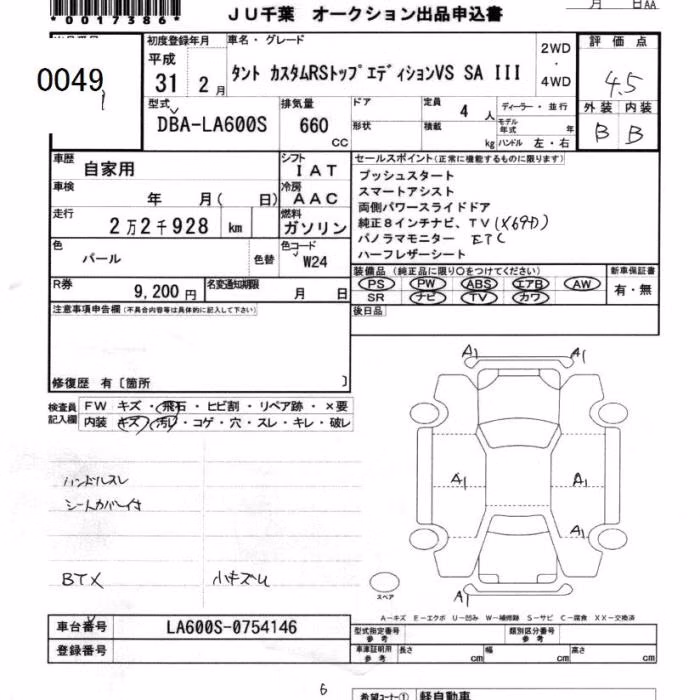 *0017386*
JU千葉 オークション出品申込書
月 日AA
0049
初度登録年月
平成
31 2月
車名・グレード
タント カスタムRSトップエディションVS SA III
2WD
・
4WD
評価点
4.5
外装 内装
B B
型式
DBA-LA600S
排気量
660
CC
ドア
形状
定員
4 人
積載
kg
ディーラー・並行
モデル年式 年
ハンドル 左・右
車歴
自家用
シフト
IAT
車検
年 月( 日)
冷房
AAC
走行
2万2千928 km
燃料
ガソリン
色
パール
色替
色コード
W24
R券
9,200円
名変通知期限
月 日
セールスポイント(正常に機能するものに限ります)
プッシュスタート
スマートアシスト
両側パワースライドドア
純正8インチナビ、TV(X69D)
パノラマモニター ETC
ハーフレザーシート
装備品(純正品に限り○をつけてください)
PS PW ABS エアB AW
SR ナビ TV カワ
新車保証書
有・無
後日品
注意事項申告欄(不具合内容等は具体的に記入して下さい)
修復歴 有〔箇所 〕
検査員
記入欄
FW キズ・飛石・ヒビ割・リペア跡・×要
内装 キズ・汚レ・コゲ・穴・スレ・キレ・破レ
ハンドルスレ
シートカバー付
BTX
小キズU
A1 A1
A1 A1
A1
A1
スペア
A-キズ E-エクボ U-凹み W-補修跡 S-サビ C-腐食 XX-交換済
車台番号
LA600S-0754146
登録番号
型式指定番号
参考
類別区分番号
参考
車庫証明用
参考
長さ cm
幅 cm
高さ cm
6
希望コーナー① 軽自動車